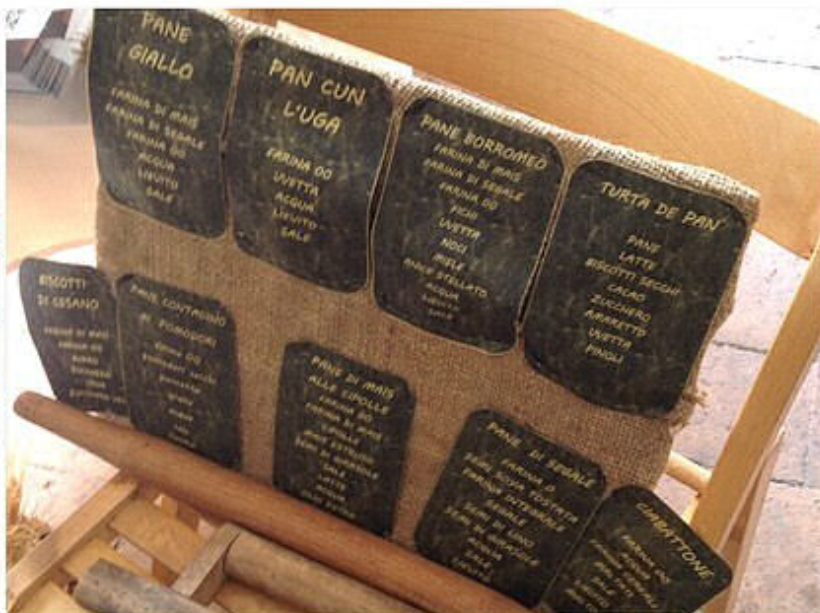 PANE
GIALLO
FARINA DI MAIS
FARINA DI SEGALE
FARINA 00
ACQUA
LIEVITO
SALE
PAN CUN
L'UGA
FARINA 00
UVETTA
ACQUA
LIEVITO
SALE
PANE BORROMEO
FARINA DI MAIS
FARINA DI SEGALE
FARINA 00
FICHI
UVETTA
NOCI
MIELE
ANICE STELLATO
ACQUA
LIEVITO
SALE
TURTA DE PAN'
PANE
LATTE
BISCOTTI SECCHI
CACAO
ZUCCHERO
AMARETTO
UVETTA
PINOLI
BISCOTTI
DI CESANO
FARINA DI MAIS
FARINA 00
BURRO
PANE CONTADINO
AI POMODORI
FARINA 00
POMODORI SECCHI
PANE DI MAIS
ALLE CIPOLLE
FARINA 00
FARINA DI MAIS
CIPOLLE
MAIS ESTRUSO
SEMI DI GIRASOLE
SALE
LATTE
ACQUA
PANE DI SEGALE
FARINA 0
SEMI SOIA TOSTATA
FARINA INTEGRALE
SEGALE
SEMI DI LINO
SEMI DI GIRASOLE
ACQUA
SALE
LIEVITO
CIABATTONE
FARINA 00
ACQUA
SALE
LIEVITO